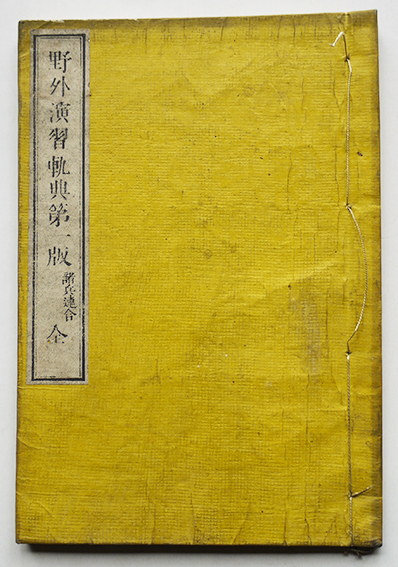 野外演習軌典第一版
諸兵連合
全